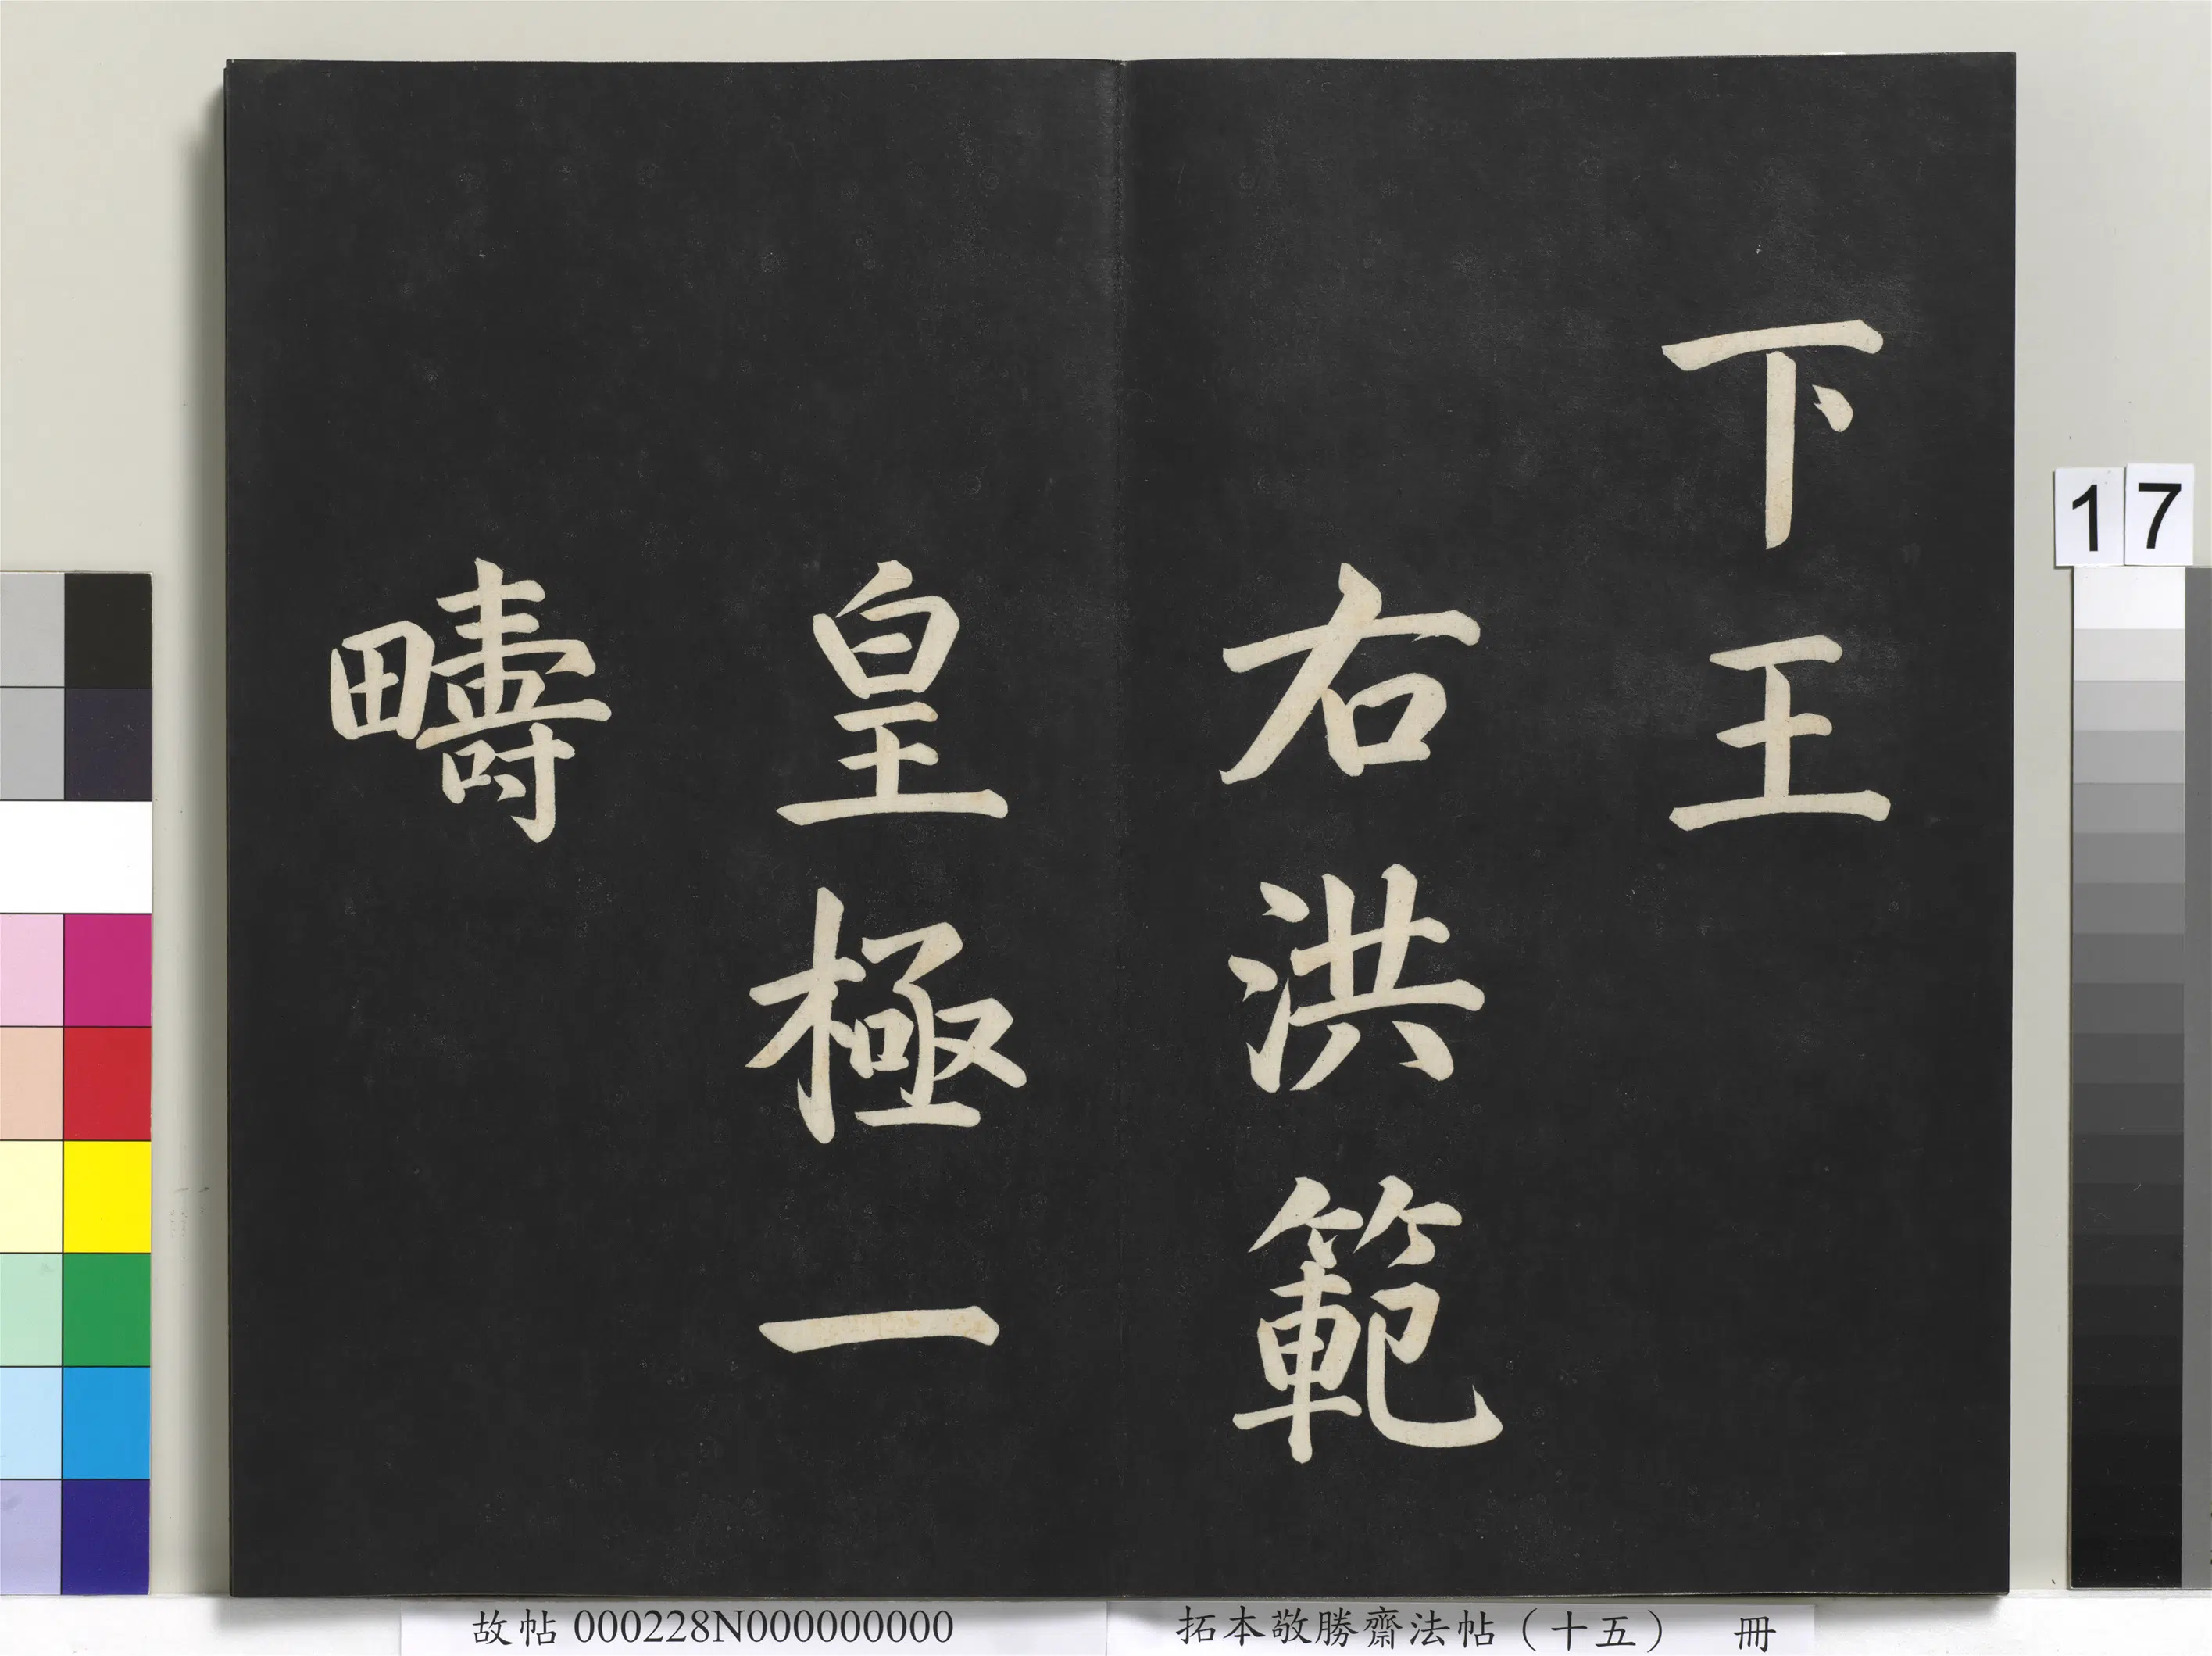 下王
右洪範
皇極一
疇
17
故帖 000228N000000000
拓本敬勝齋法帖（十五） 冊